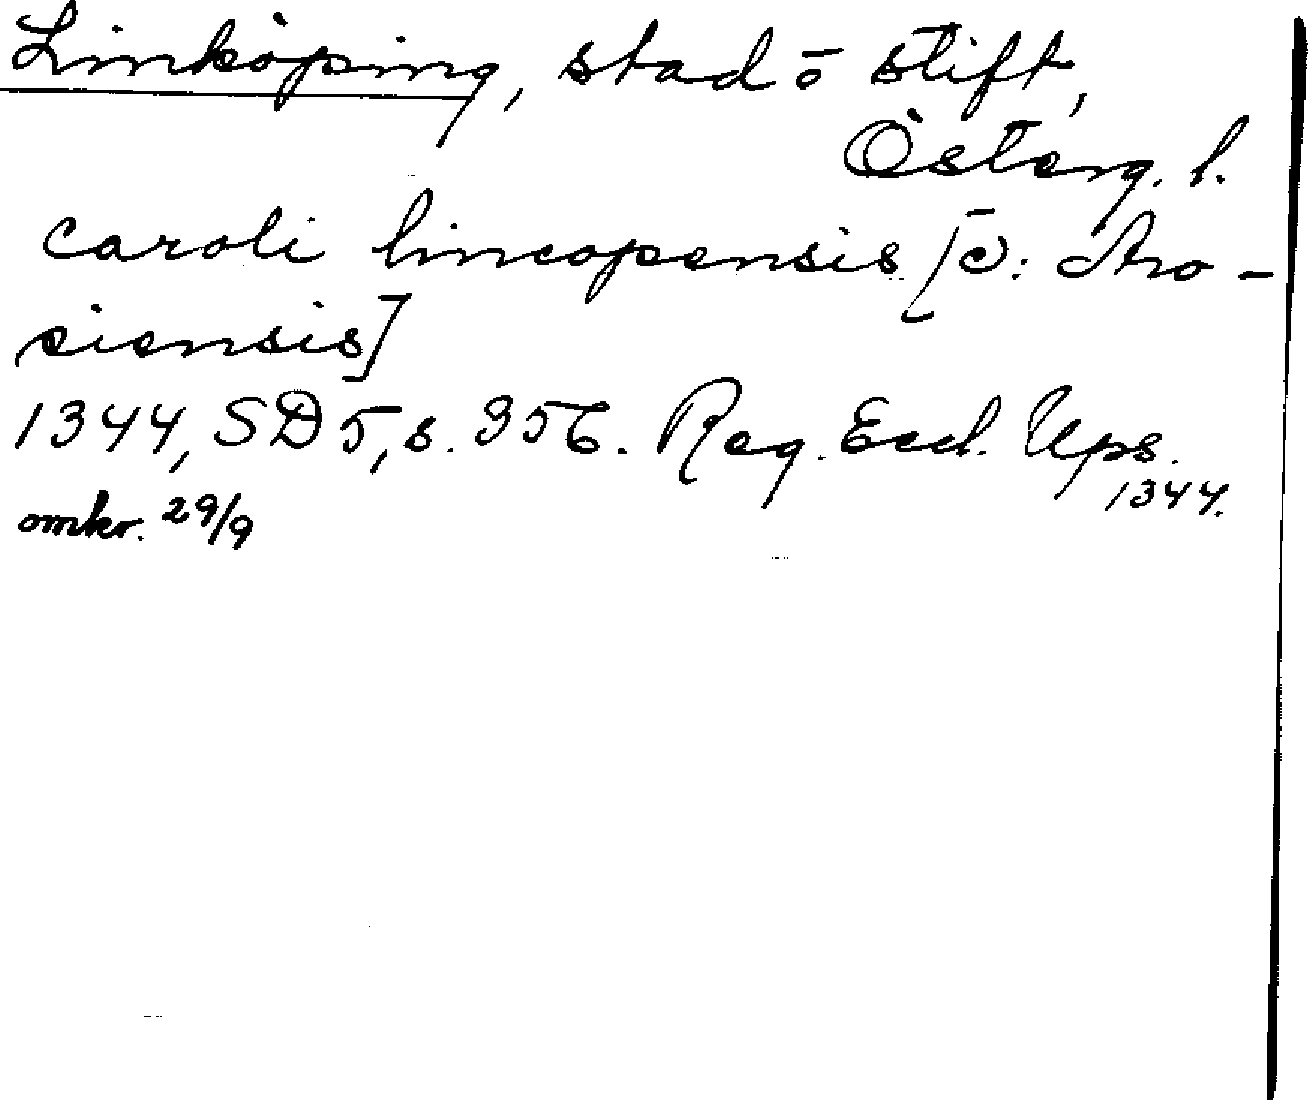 Linköping, stad o stift,
Österg. l.
caroli lincopensis [ɔ: Aro-
siensis]
1344, SD 5, s. 356. Reg. Eccl. Ups.
1344.
omkr. 29/9